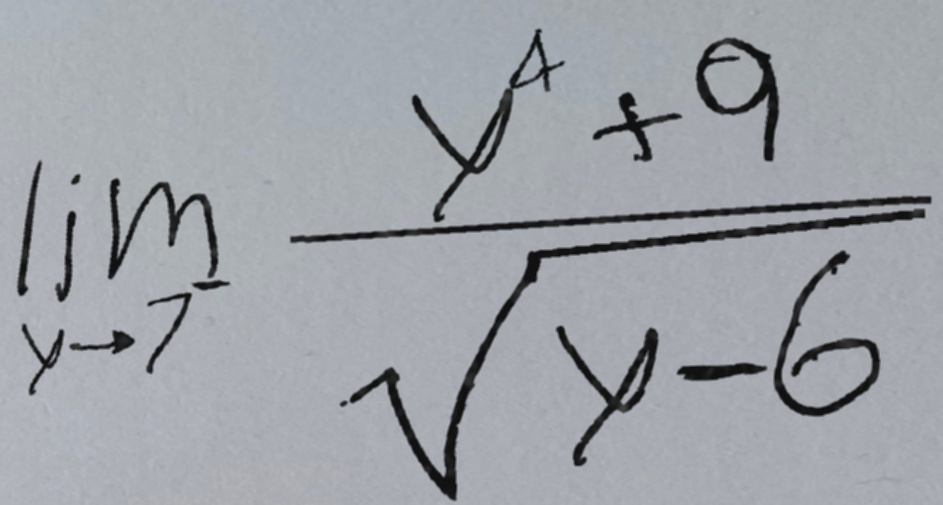 lim_{y→7^-} \frac{y^4+9}{\sqrt{y-6}}